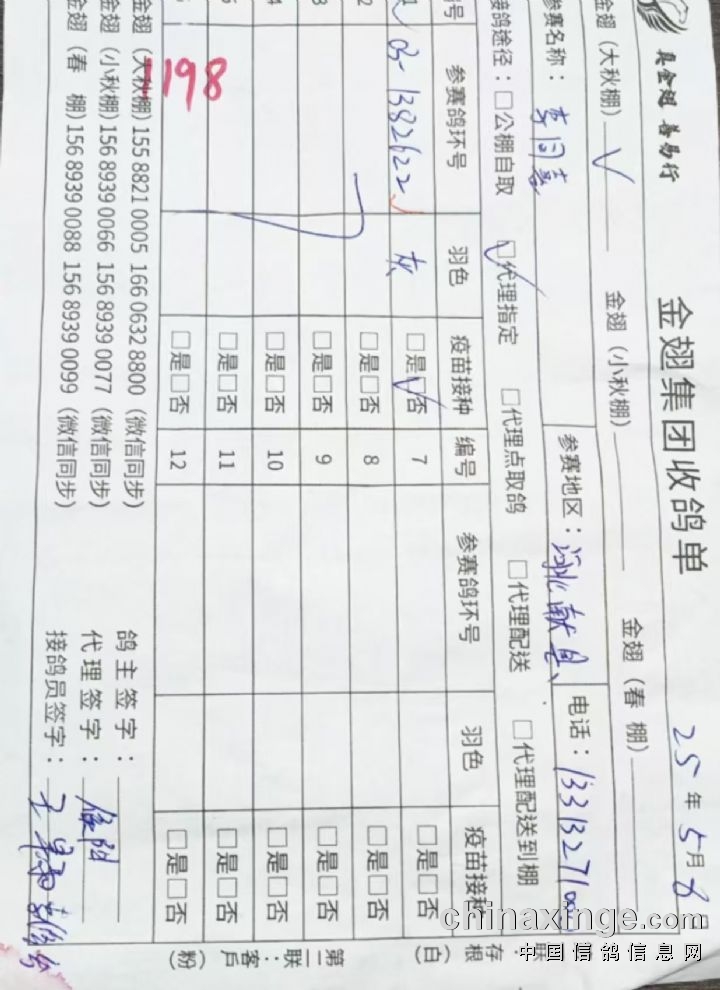 真金翅 善易行
金翅集团收鸽单
25年5月8日
金翅（大秋棚）√ 金翅（小秋棚） 金翅（春 棚）
参赛名称： 参赛地区：河北献县 电话：
接鸽途径：□公棚自取 □代理指定 □代理点取鸽 □代理配送 □代理配送到棚
参赛鸽环号 羽色 疫苗接种 编号 参赛鸽环号 羽色 疫苗接种
03-1382622 灰 □是□否 7 □是□否
2 □是□否 8 □是□否
3 □是□否 9 □是□否
4 □是□否 10 □是□否
□是□否 11 □是□否
□是□否 12 □是□否
198
金翅（大秋棚）155 8821 0005 166 0632 8800（微信同步）
金翅（小秋棚）156 8939 0066 156 8939 0077（微信同步）
金翅（春 棚）156 8939 0088 156 8939 0099（微信同步）
鸽主签字：
代理签字：
接鸽员签字：
联：存根（白）
第二联：客户（粉）
chinaxinge.com
中国信鸽信息网